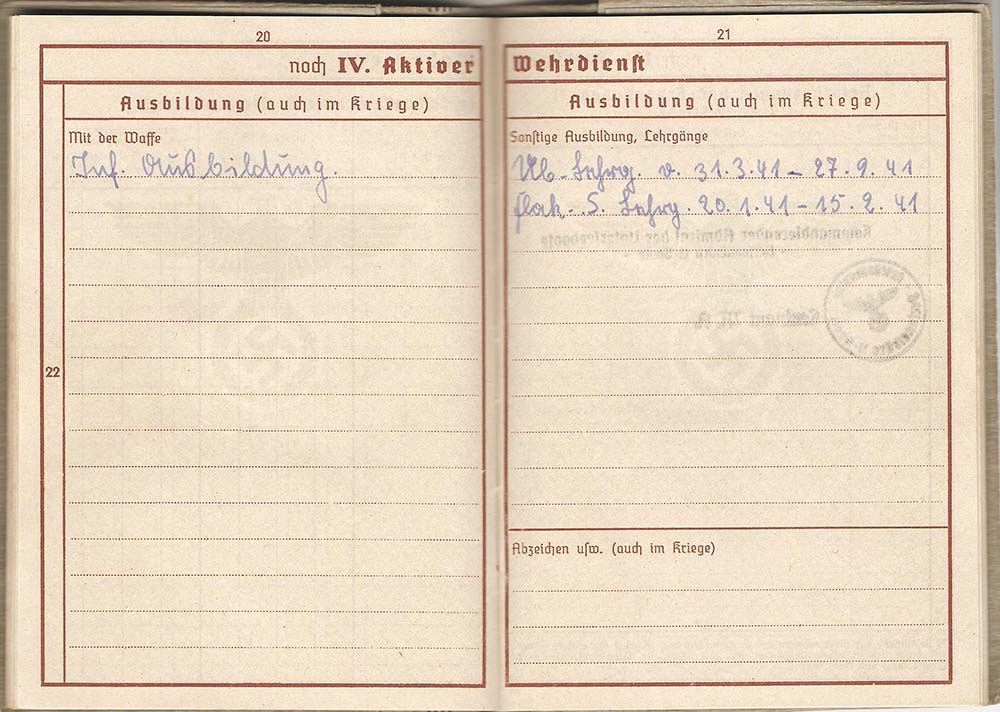 20
noch IV. Aktiver
Ausbildung (auch im Kriege)
Mit der Waffe
Inf. Ausbildung.
22
21
Wehrdienst
Ausbildung (auch im Kriege)
Sonstige Ausbildung, Lehrgänge
Ub-Lehrg. v. 31.3.41 – 27.9.41
Flak-S. Lehrg. 20.1.41 – 15.2.41
Abzeichen usw. (auch im Kriege)